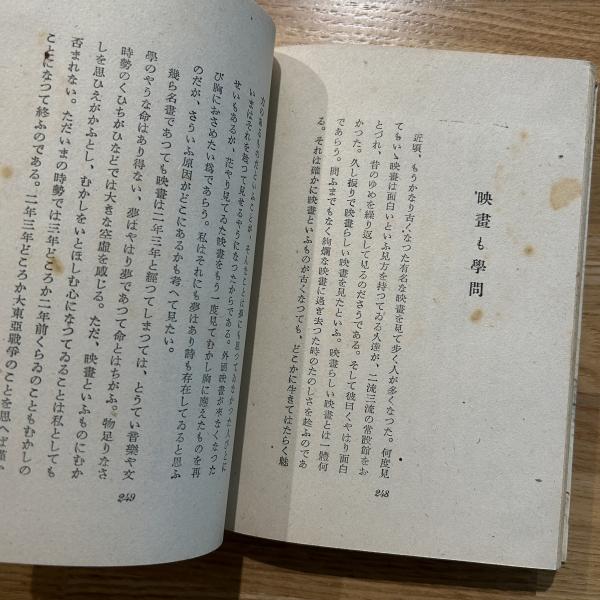 映畫も學問
近頃、もうかなり古くなつた有名な映畫を見て步く人が多くなつた。何度見
てもいゝ映畫は面白いといふ見方を持つてゐる人達が、二流三流の常設館をお
とづれ、昔のゆめを繰り返して見るのださうである。そして彼曰くやはり面白
かつた。久し振りで映畫らしい映畫を見たといふ。映畫らしい映畫とは一體何
であらう。問ふまでもなく絢爛な映畫に過ぎ去つた時のたのしさを趁ふのであ
る。それは確かに映畫といふものが古くなつても、どこかに生きてはたらく魅
248
力の
いまはそれを越つて見せるやうになつたからである。外國映畫が來なくなつた
せいもあるが、花やり見てゐた映畫をもう一度見てむかし胸に應えたものを再
び胸におさめたい爲であらう。私はそれにも夢はあり詩も存在してゐると思ふ
のだが、さういふ原因がどこにあるかも考へて見たい。
幾ら名畫であつても映畫は二年三年と經つてしまつては、とうてい音樂や文
學のやうな命はあり得ない、夢はやはり夢であつて命とはちがふ。物足りなさ
時勢のくひちがひなどでは大きな空虛を感じる。ただ、映畫といふものにむか
しを思ひえがかふとし、むかしをいとほしむ心になつてゐることは私としても
否まれない。ただいまの時勢では三年どころか二年前くらゐのこともむかしの
ことになつて終ふのである。二年三年どころか大東亞戰爭のことを思へば僅か
249